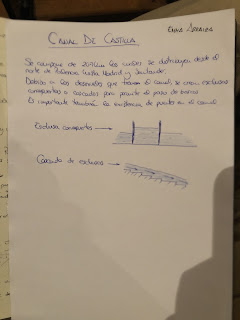 CANAL DE CASTILLA
Se compone de 207 Km los cuales se distribuyen desde el
norte de Palencia hasta Madrid y Santander.
Debido a los desniveles que tiene el canal, se crean esclusas
compuertas o cascadas para permitir el paso de barcos
Es importante también la existencia de puentes en el canal
Esclusa compuertas →
Cascada de esclusas →